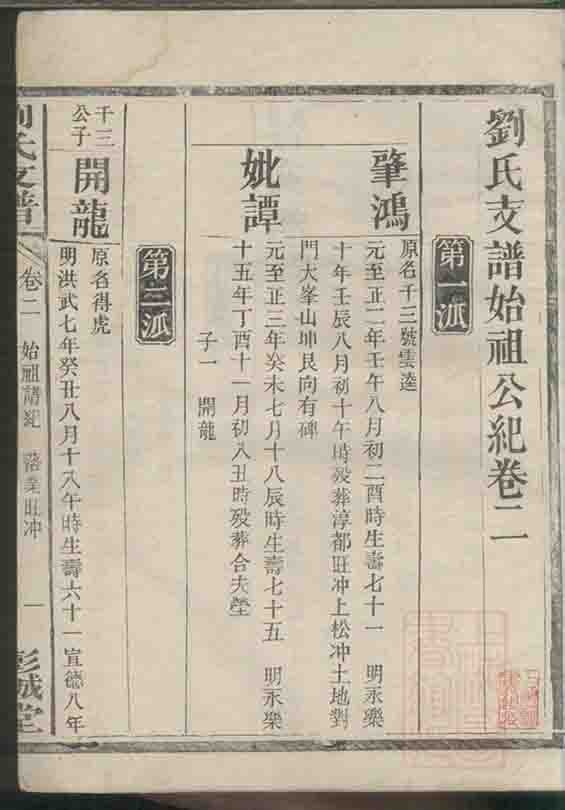 劉氏支譜始祖公紀卷二
第一派
肇鴻
原名千三號雲逵
元至正二年壬午八月初二酉時生壽七十一 明永樂
十年壬辰八月初十午時殁葬淳都旺冲上松冲土地對
門大峯山坤艮向有碑
妣譚
元至正三年癸未七月十八辰時生壽七十五 明永樂
十五年丁酉十一月初八丑時殁葬合夫塋
子一 開龍
第二派
千三
公子
開龍
原名得虎
明洪武七年癸丑八月十八午時生壽六十一宣德八年
劉氏支譜
卷二
始祖譜紀
旺冲
一
彭城堂